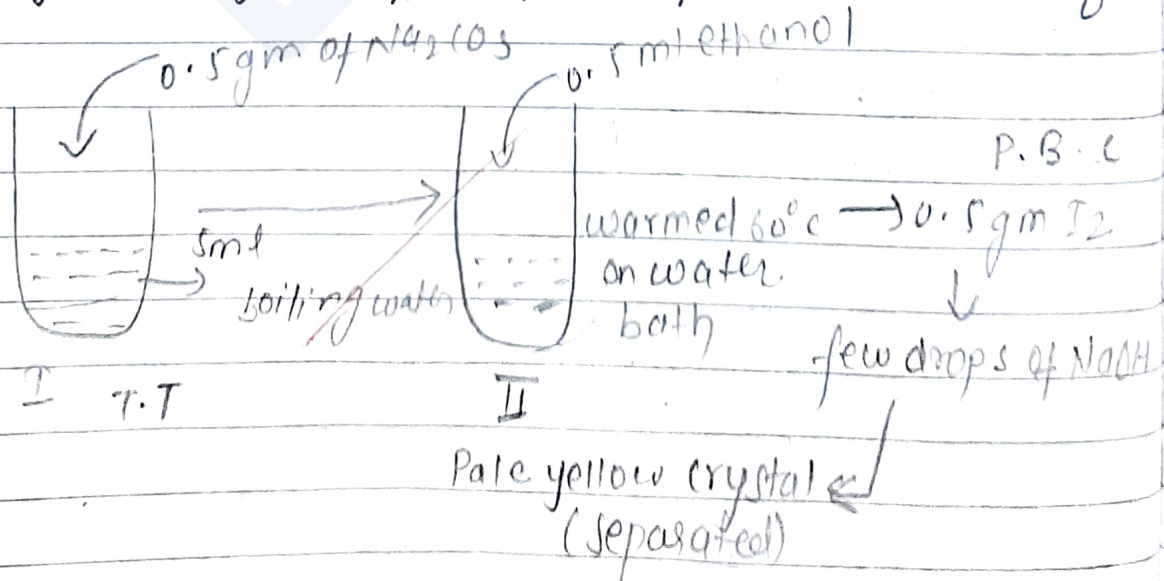 0.5gm of Na2CO3
0.5ml ethanol
P.B.C
5ml
boiling water
warmed 60°C → 0.5gm I2
on water
bath
few drops of NaOH
I T.T
II
Pale yellow crystal
(separated)